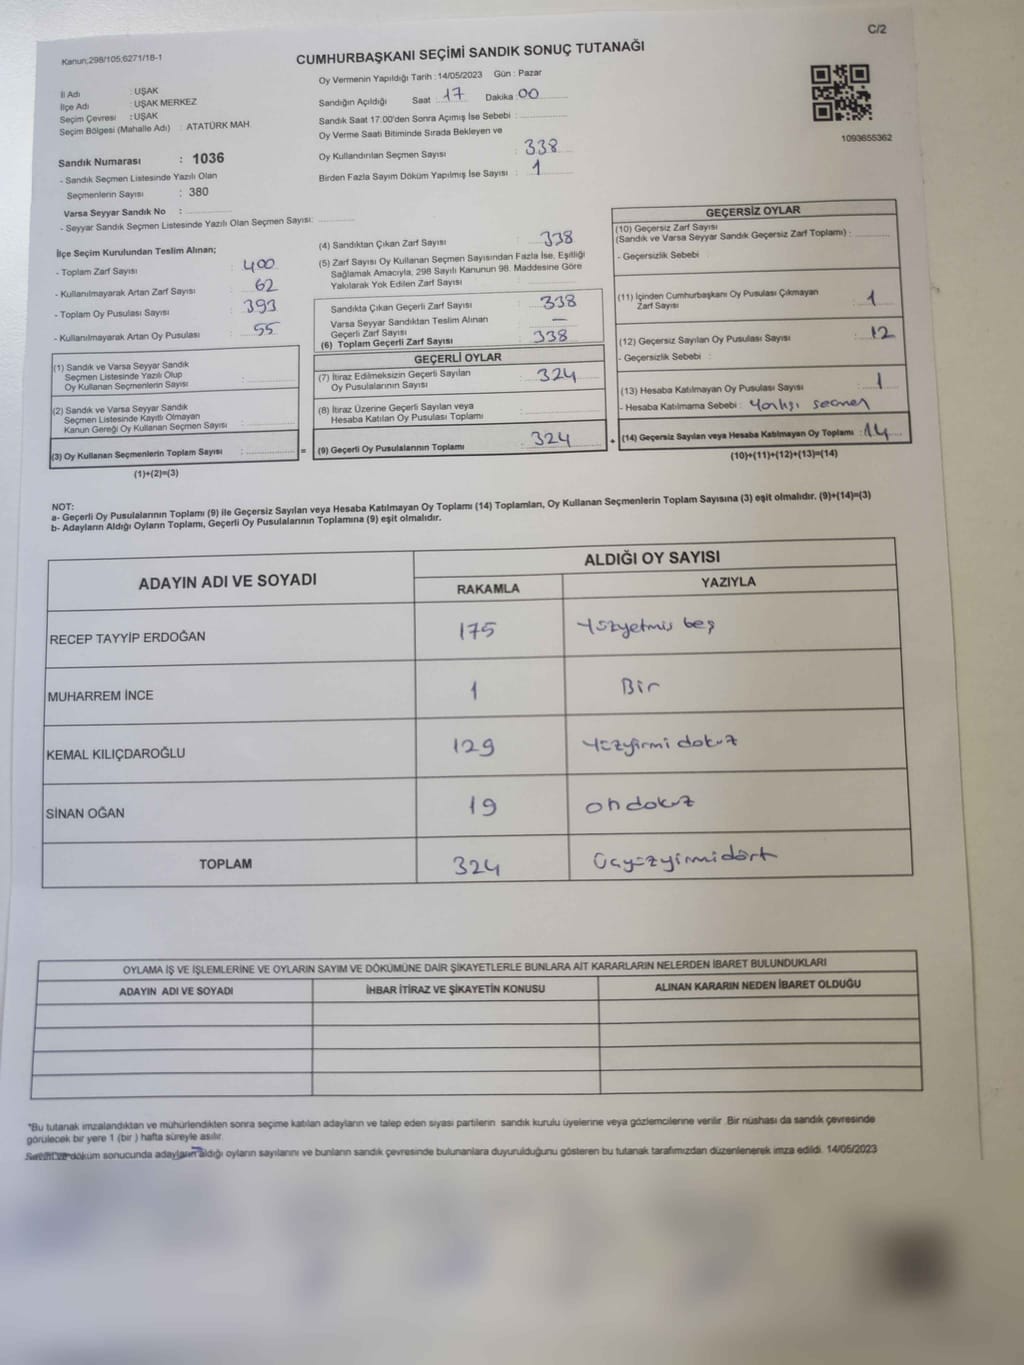 C/2
Kanun;298/105;6271/18-1
CUMHURBAŞKANI SEÇİMİ SANDIK SONUÇ TUTANAĞI
İl Adı : UŞAK
İlçe Adı : UŞAK MERKEZ
Seçim Çevresi : UŞAK
Seçim Bölgesi (Mahalle Adı) : ATATÜRK MAH.
Sandık Numarası : 1036
- Sandık Seçmen Listesinde Yazılı Olan
Seçmenlerin Sayısı : 380
Varsa Seyyar Sandık No :
- Seyyar Sandık Seçmen Listesinde Yazılı Olan Seçmen Sayısı:
Oy Vermenin Yapıldığı Tarih : 14/05/2023 Gün : Pazar
Sandığın Açıldığı Saat : 17 Dakika : 00
Sandık Saat 17.00'den Sonra Açımış İse Sebebi :
Oy Verme Saati Bitiminde Sırada Bekleyen ve
Oy Kullandırılan Seçmen Sayısı : 338
Birden Fazla Sayım Döküm Yapılmış İse Sayısı : 1
1093655362
İlçe Seçim Kurulundan Teslim Alınan;
- Toplam Zarf Sayısı : 400
- Kullanılmayarak Artan Zarf Sayısı : 62
- Toplam Oy Pusulası Sayısı : 393
- Kullanılmayarak Artan Oy Pusulası : 55
(1) Sandık ve Varsa Seyyar Sandık
Seçmen Listesinde Yazılı Olup
Oy Kullanan Seçmenlerin Sayısı :
(2) Sandık ve Varsa Seyyar Sandık
Seçmen Listesinde Kayıtlı Olmayan
Kanun Gereği Oy Kullanan Seçmen Sayısı :
(3) Oy Kullanan Seçmenlerin Toplam Sayısı : =
(1)+(2)=(3)
(4) Sandıktan Çıkan Zarf Sayısı : 338
(5) Zarf Sayısı Oy Kullanan Seçmen Sayısından Fazla İse, Eşitliği
Sağlamak Amacıyla, 298 Sayılı Kanunun 98. Maddesine Göre
Yakılarak Yok Edilen Zarf Sayısı :
Sandıkta Çıkan Geçerli Zarf Sayısı : 338
Varsa Seyyar Sandıktan Teslim Alınan
Geçerli Zarf Sayısı : —
(6) Toplam Geçerli Zarf Sayısı : 338
GEÇERLİ OYLAR
(7) İtiraz Edilmeksizin Geçerli Sayılan
Oy Pusulalarının Sayısı : 324
(8) İtiraz Üzerine Geçerli Sayılan veya
Hesaba Katılan Oy Pusulası Toplamı :
(9) Geçerli Oy Pusulalarının Toplamı : 324 +
GEÇERSİZ OYLAR
(10) Geçersiz Zarf Sayısı
(Sandık ve Varsa Seyyar Sandık Geçersiz Zarf Toplamı) :
- Geçersizlik Sebebi :
(11) İçinden Cumhurbaşkanı Oy Pusulası Çıkmayan
Zarf Sayısı : 1
(12) Geçersiz Sayılan Oy Pusulası Sayısı : 12
- Geçersizlik Sebebi :
(13) Hesaba Katılmayan Oy Pusulası Sayısı : 1
- Hesaba Katılmama Sebebi : Yanlışı seçmen
(14) Geçersiz Sayılan veya Hesaba Katılmayan Oy Toplamı : 14
(10)+(11)+(12)+(13)=(14)
NOT:
a- Geçerli Oy Pusulalarının Toplamı (9) ile Geçersiz Sayılan veya Hesaba Katılmayan Oy Toplamı (14) Toplamları, Oy Kullanan Seçmenlerin Toplam Sayısına (3) eşit olmalıdır. (9)+(14)=(3)
b- Adayların Aldığı Oyların Toplamı, Geçerli Oy Pusulalarının Toplamına (9) eşit olmalıdır.
ADAYIN ADI VE SOYADI ALDIĞI OY SAYISI
RAKAMLA YAZIYLA
RECEP TAYYİP ERDOĞAN 175 Yüzyetmiş beş
MUHARREM İNCE 1 Bir
KEMAL KILIÇDAROĞLU 129 Yüzyirmi dokuz
SİNAN OĞAN 19 ondokuz
TOPLAM 324 Üçyüzyirmidört
OYLAMA İŞ VE İŞLEMLERİNE VE OYLARIN SAYIM VE DÖKÜMÜNE DAİR ŞİKAYETLERLE BUNLARA AİT KARARLARIN NELERDEN İBARET BULUNDUKLARI
ADAYIN ADI VE SOYADI İHBAR İTİRAZ VE ŞİKAYETİN KONUSU ALINAN KARARIN NEDEN İBARET OLDUĞU
*Bu tutanak imzalandıktan ve mühürlendikten sonra seçime katılan adayların ve talep eden siyasi partilerin sandık kurulu üyelerine veya gözlemcilerine verilir. Bir nüshası da sandık çevresinde
görülecek bir yere 1 (bir ) hafta süreyle asılır.
döküm sonucunda adayların aldığı oyların sayılarını ve bunların sandık çevresinde bulunanlara duyurulduğunu gösteren bu tutanak tarafımızdan düzenlenerek imza edildi. 14/05/2023